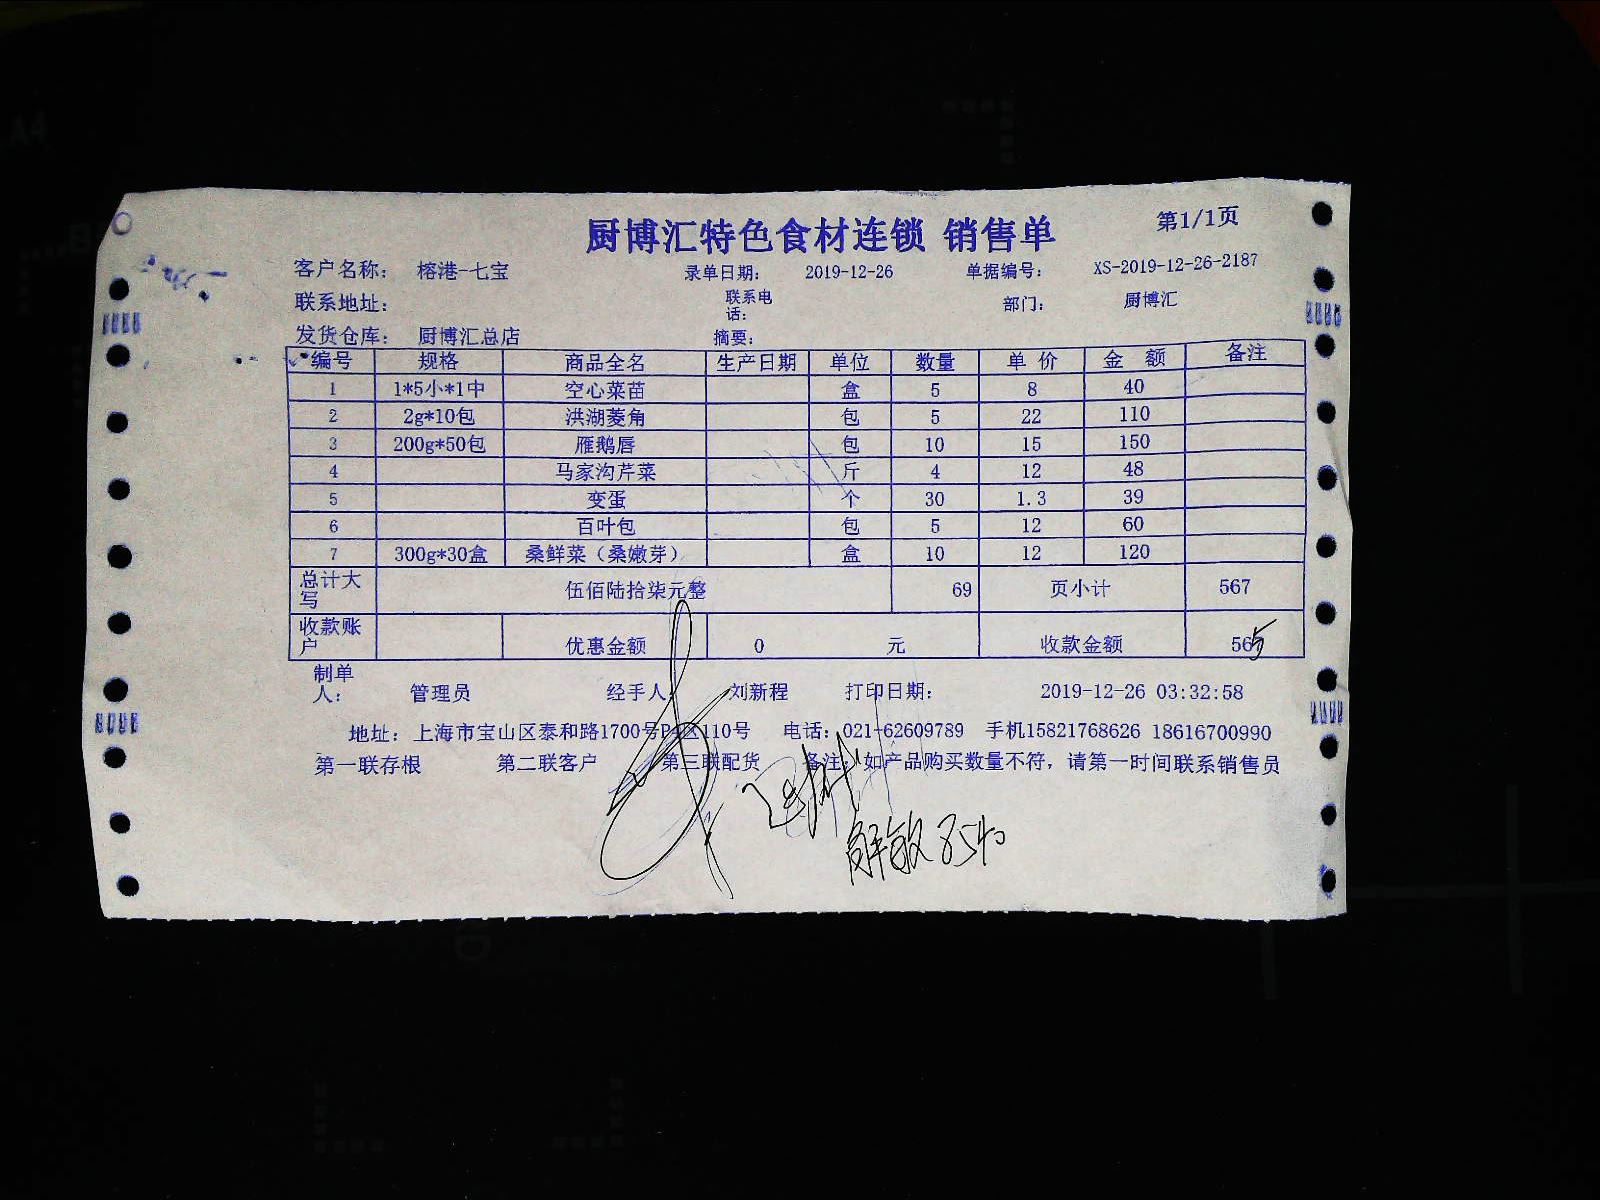 厨博汇特色食材连锁 销售单 第1/1页
客户名称： 榕港-七宝 录单日期： 2019-12-26 单据编号： XS-2019-12-26-2187
联系地址： 联系电话： 部门： 厨博汇
发货仓库： 厨博汇总店 摘要：
编号 规格 商品全名 生产日期 单位 数量 单价 金额 备注
1 1*5小*1中 空心菜苗 盒 5 8 40
2 2g*10包 洪湖菱角 包 5 22 110
3 200g*50包 雁鹅唇 包 10 15 150
4 马家沟芹菜 斤 4 12 48
5 变蛋 个 30 1.3 39
6 百叶包 包 5 12 60
7 300g*30盒 桑鲜菜（桑嫩芽） 盒 10 12 120
总计大写 伍佰陆拾柒元整 69 页小计 567
收款账户 优惠金额 0 元 收款金额 565
制单人： 管理员 经手人： 刘新程 打印日期： 2019-12-26 03:32:58
地址：上海市宝山区泰和路1700号P1区110号 电话：021-62609789 手机15821768626 18616700990
第一联存根 第二联客户 第三联配货 备注：如产品购买数量不符，请第一时间联系销售员